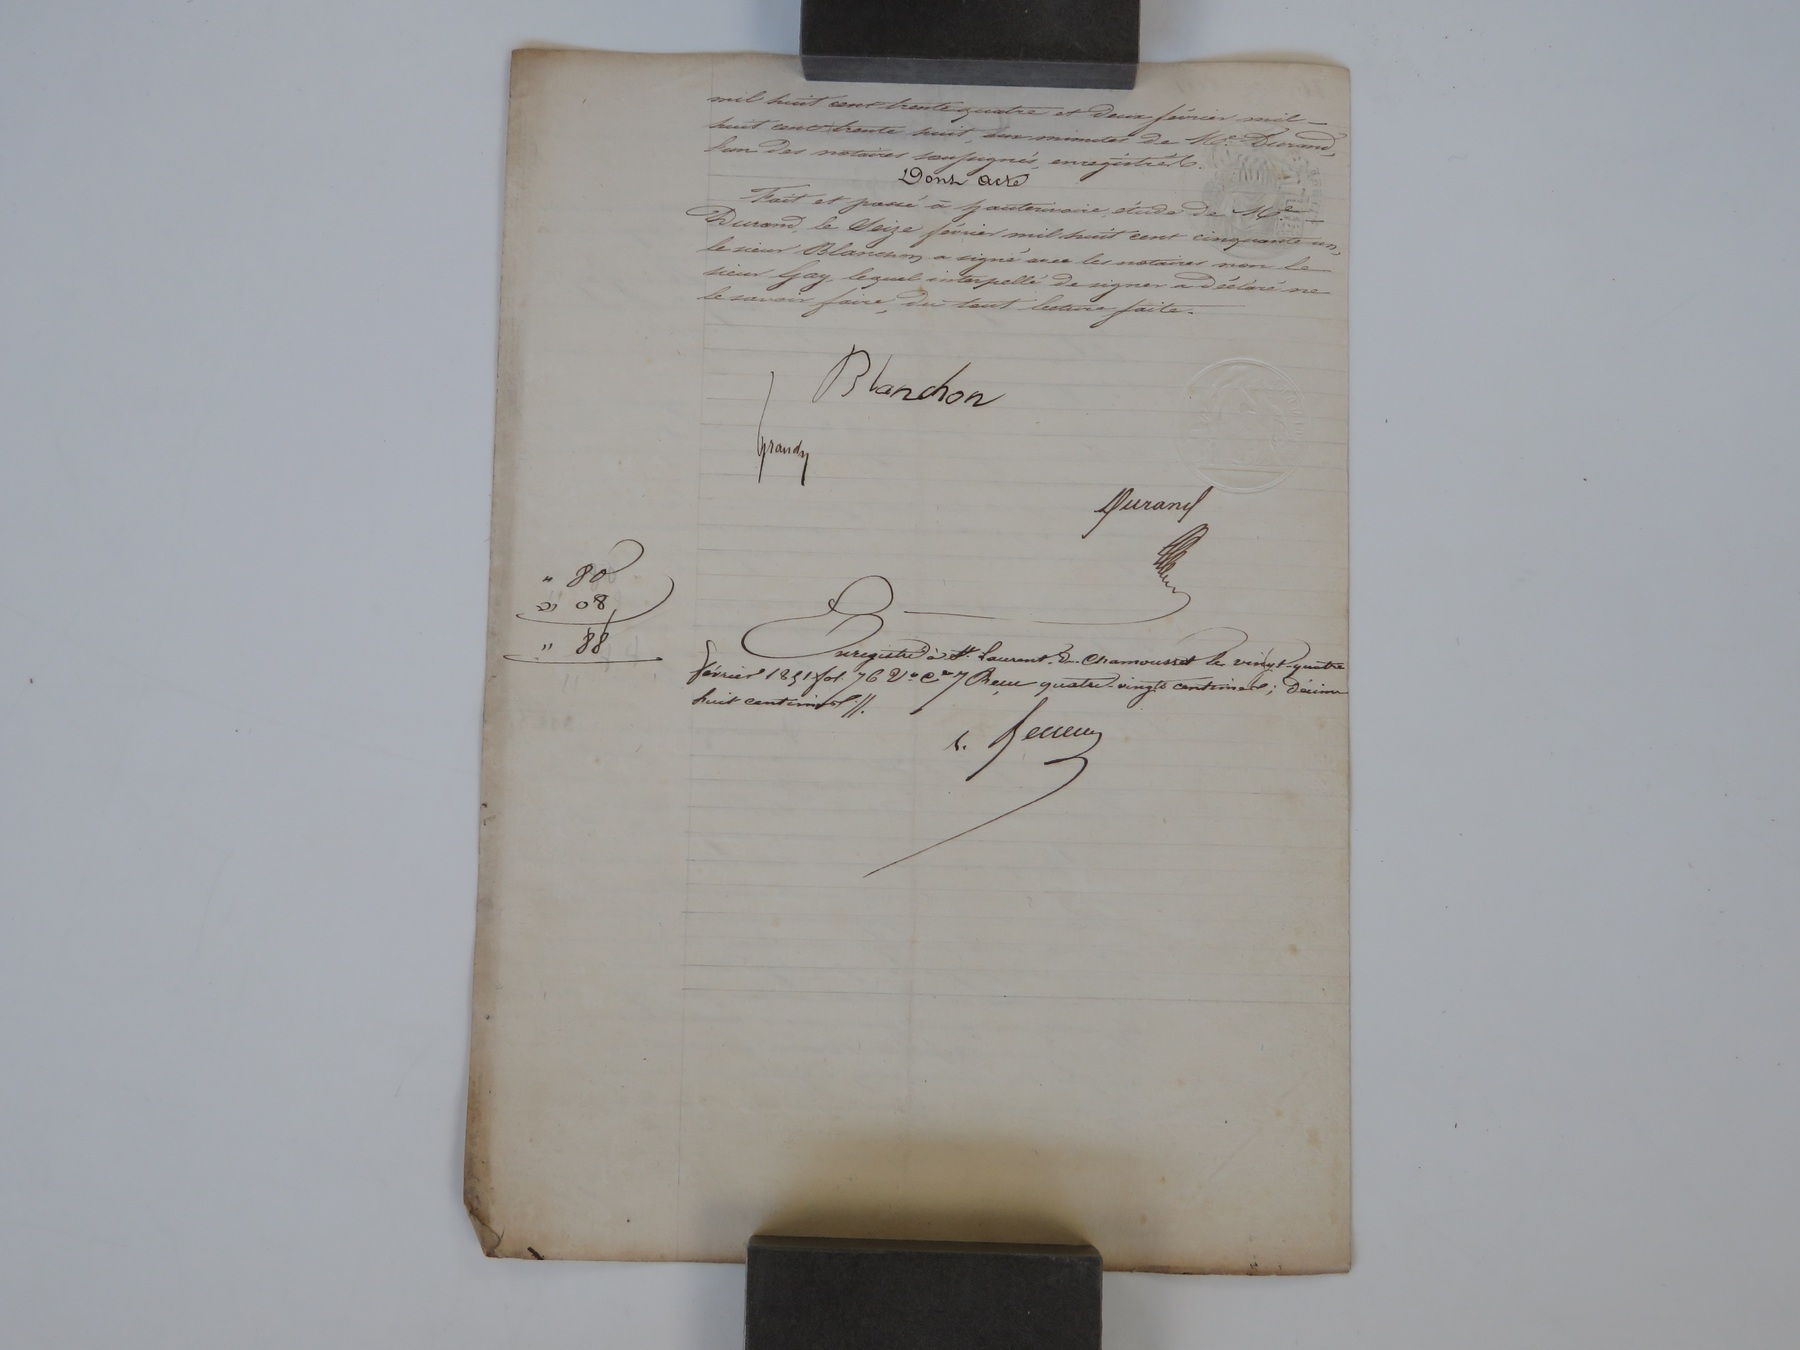 mil huit cent trente quatre et deux février mil
huit cent trente huit, aux minutes de Me. Durand,
l'un des notaires soussignés, enregistrés.
Dont acte
Fait et passé à hauterivoire, étude de Me.
Durand, le Seize février mil huit cent cinquante un,
le sieur Blanchon a signé avec les notaires non le
sieur Gay, lequel interpellé de signer a déclaré ne
le savoir faire, du tout lecture faite.
Blanchon
Grandy
Durand
" 80
" 08
" 88
Enregistré à St. Laurent de Chamousset le vingt-quatre
février 1851 fol. 76 Vo Ce 7 Reçu quatre vingts centimes; décime
huit centimes //.